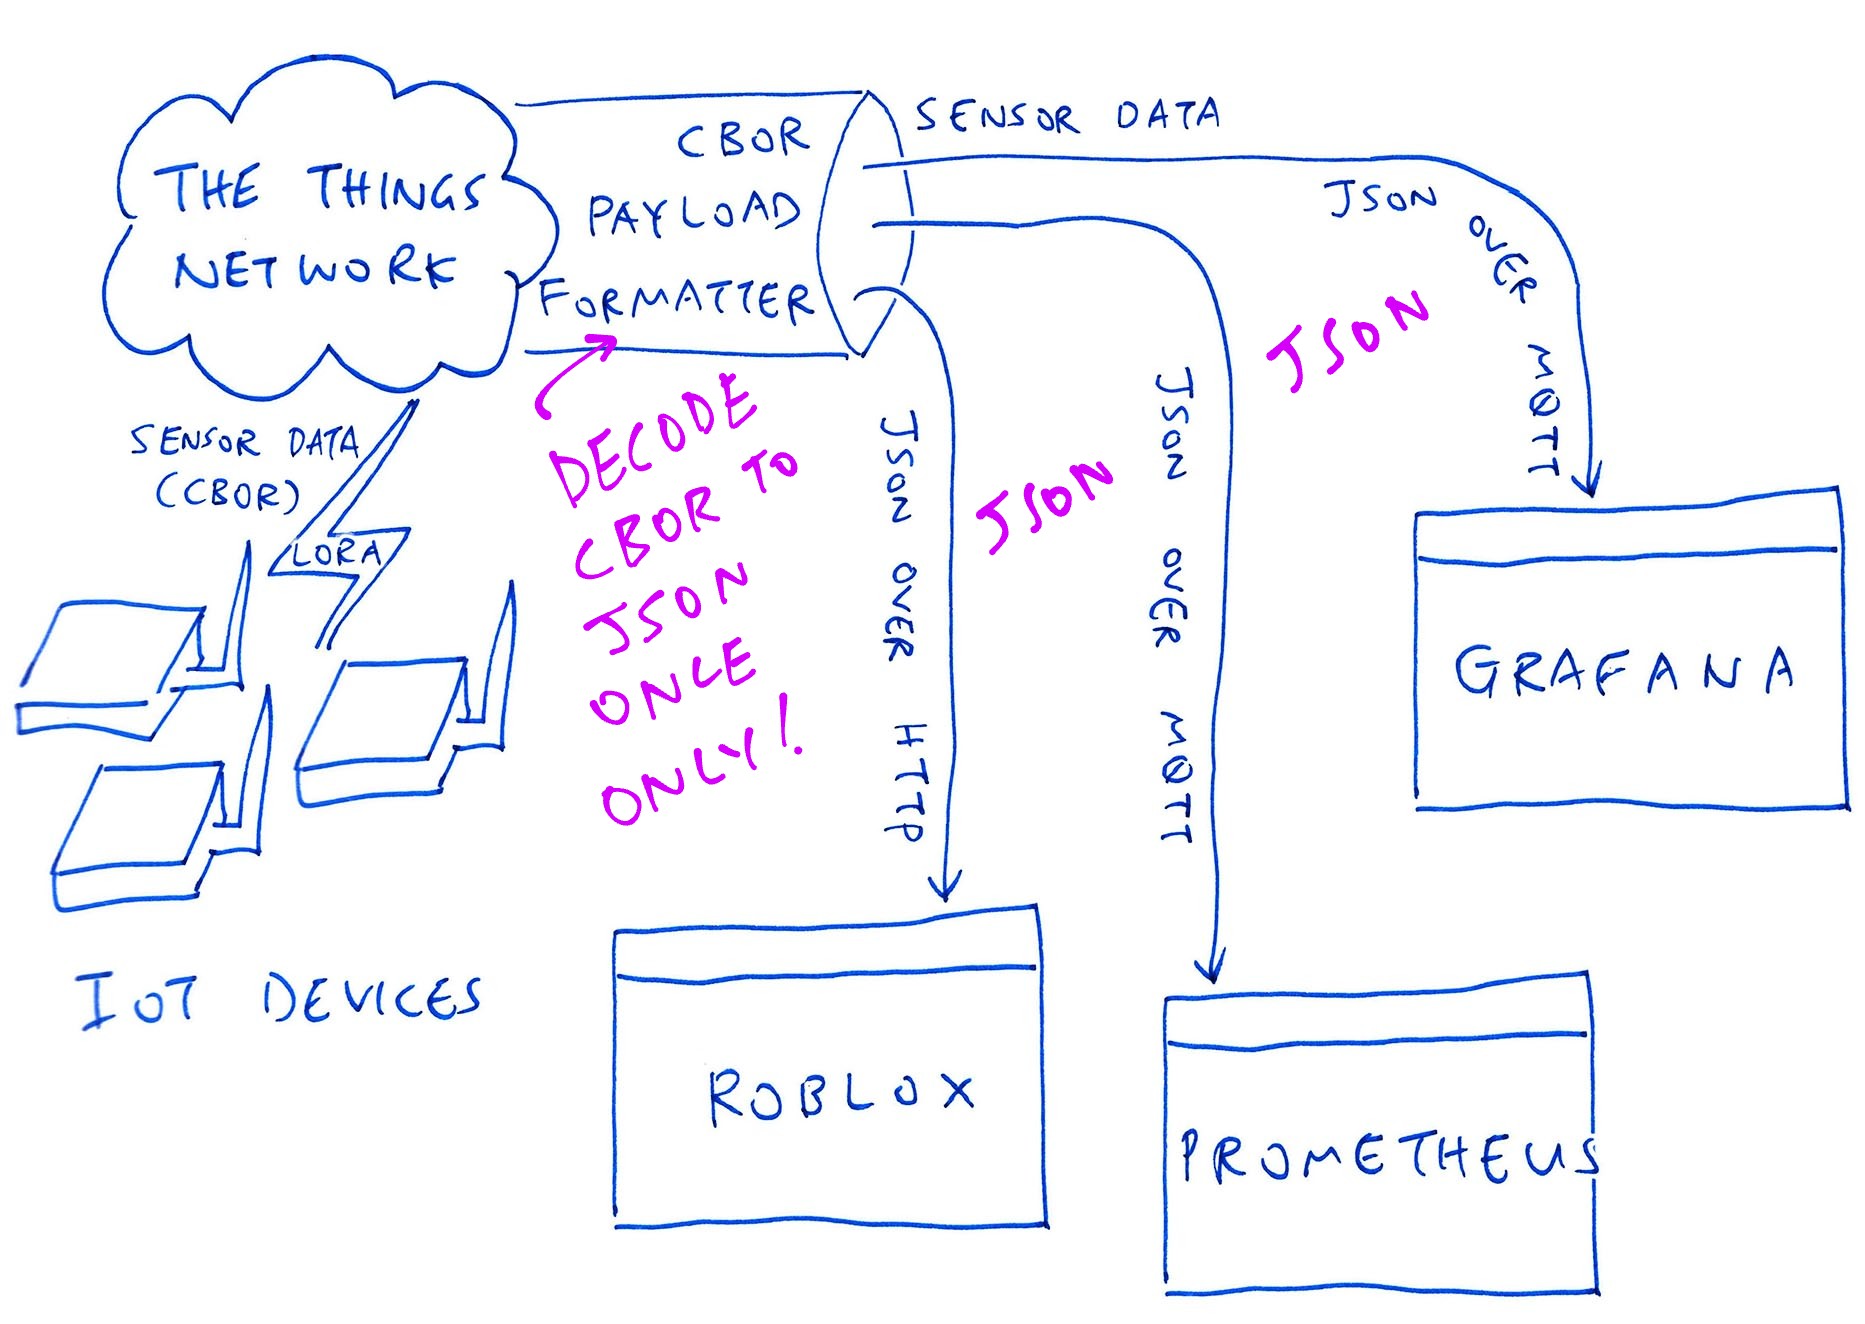 THE THINGS
NETWORK
CBOR
PAYLOAD
FORMATTER
SENSOR DATA
JSON OVER MQTT
JSON
SENSOR DATA
(CBOR)
LORA
DECODE
CBOR TO
JSON
ONCE
ONLY!
JSON OVER HTTP
JSON
JSON OVER MQTT
GRAFANA
IOT DEVICES
ROBLOX
PROMETHEUS